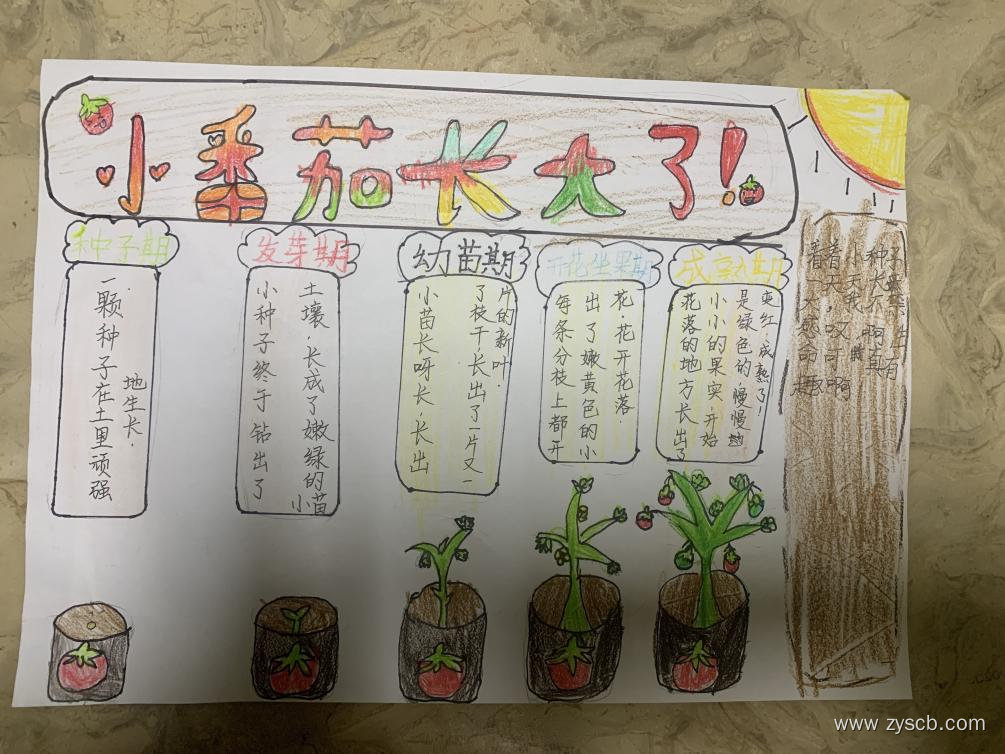 小番茄长大了!
种子期
一颗种子在土里顽强
地生长.
发芽期
小种子终于钻出了
土壤,长成了嫩绿的小苗
幼苗期
小苗长呀长,长出
了枝干长出了一片又一
片的新叶.
开花坐果期
每条分枝上都开
出了嫩黄色的小
花,花开花落.
成熟期
花落的地方长出了
小小的果实,开始
是绿色的,慢慢地
变红,成熟了!
看着小种子
www.zyscb.com